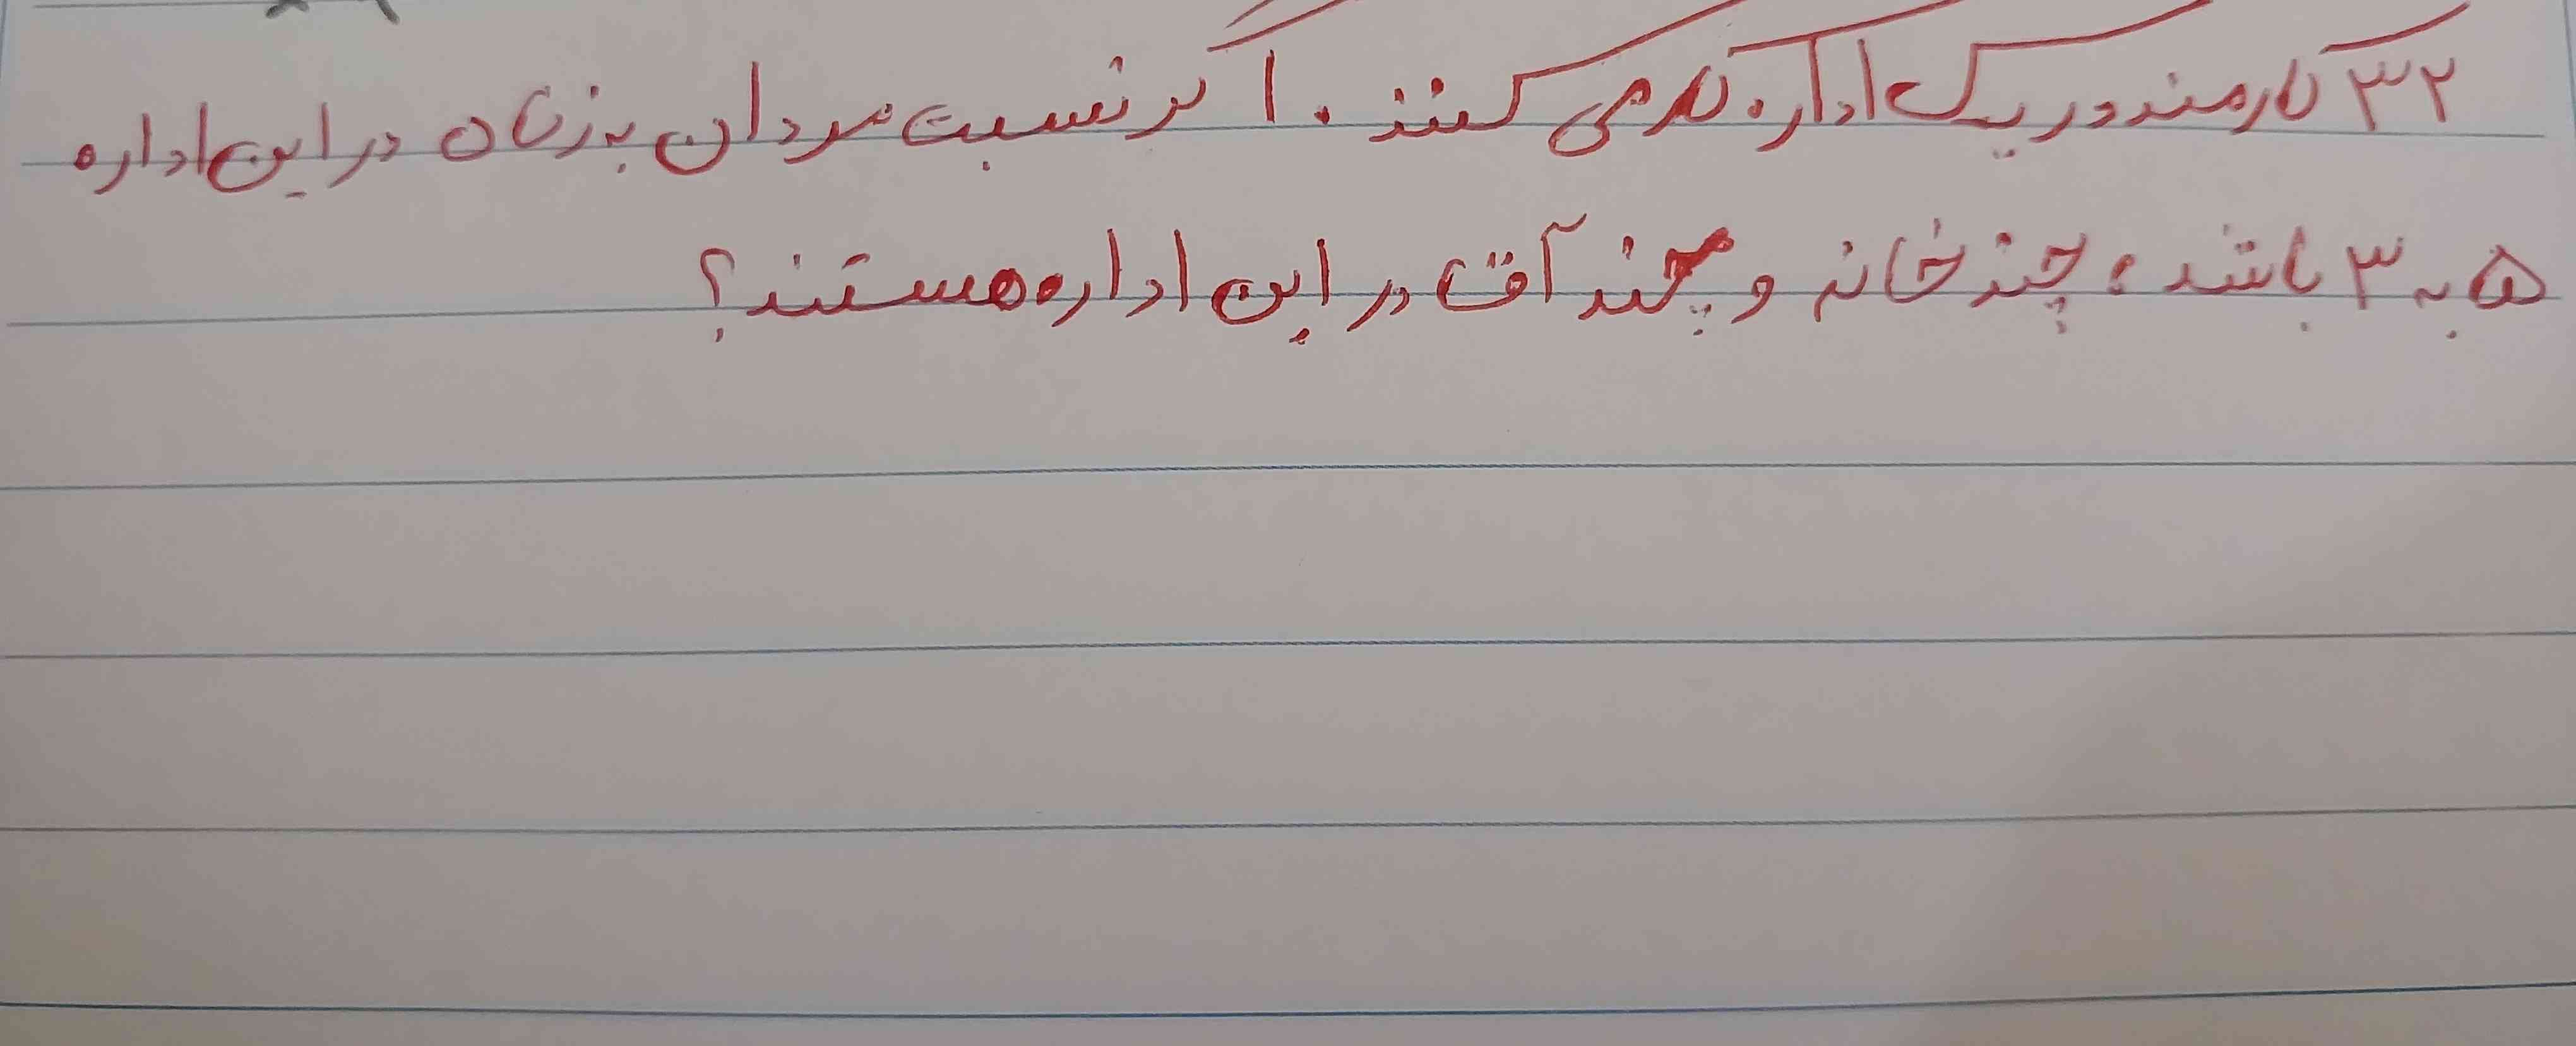 ۳۲ کارمند در یک اداره کار می کنند. اگر نسبت مردان به زنان در این اداره
۵ به ۳ باشد؛ چند خانم و چند آقا در این اداره هستند؟